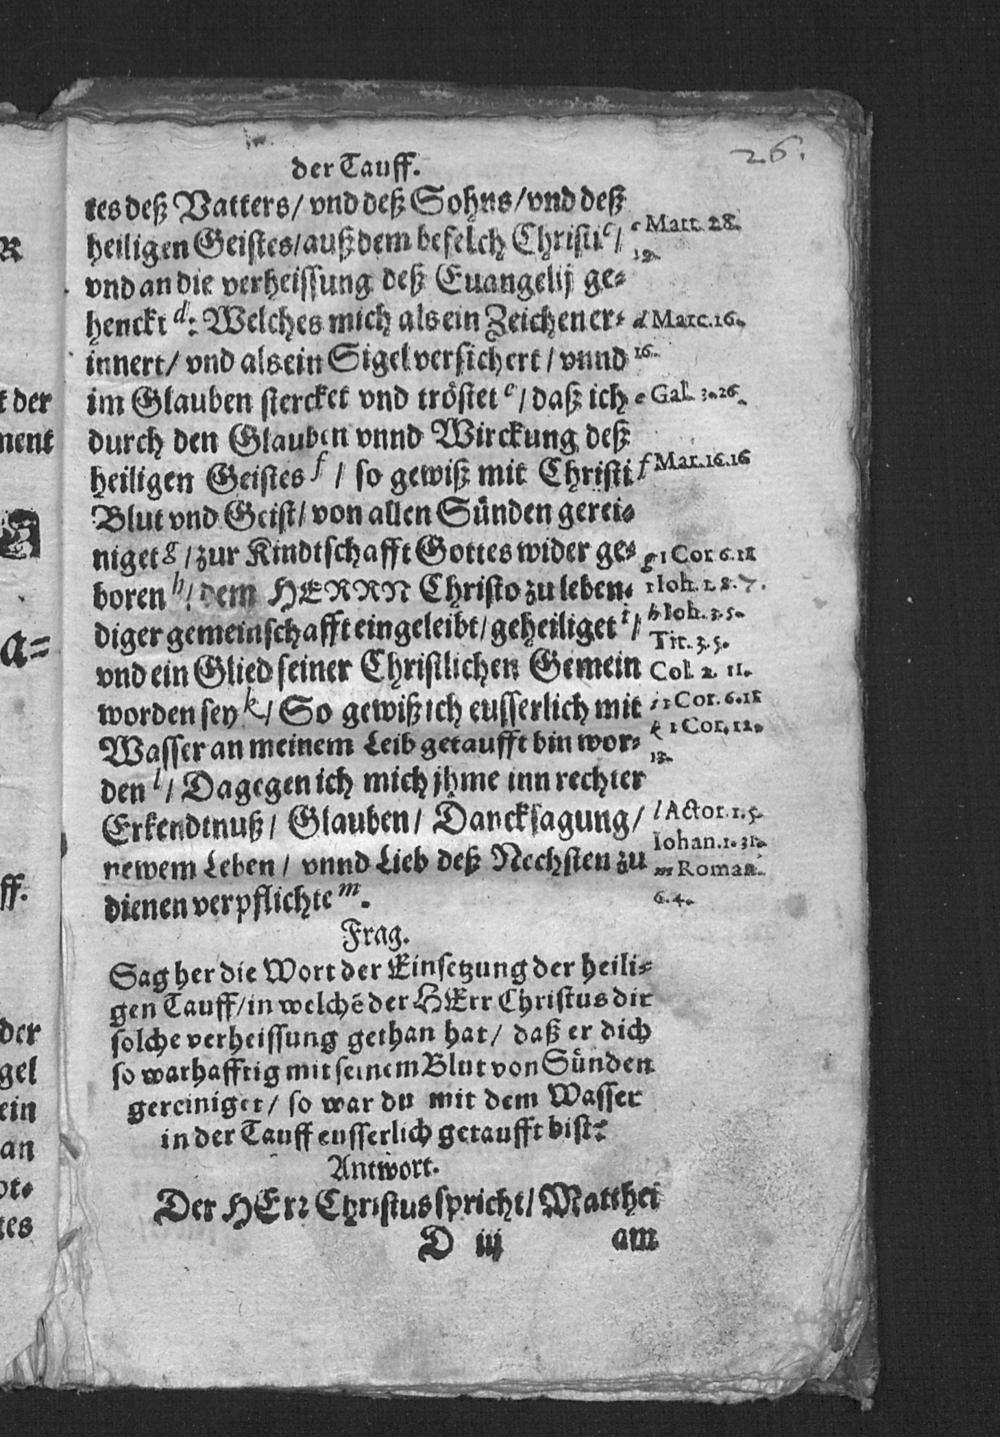 26.
der Tauff.
tes deß Vatters/ vnd deß Sohns/ vnd deß
heiligen Geistes/ auß dem befelch Christi c/
vnd an die verheissung deß Euangelij ge-
henckt d: Welches mich als ein Zeichen er-
innert/ vnd als ein Sigel versichert/ vnnd
im Glauben stercket vnd tröstet e/ daß ich
durch den Glauben vnnd Wirckung deß
heiligen Geistes f/ so gewiß mit Christi
Blut vnd Geist/ von allen Sünden gerei-
niget g/ zur Kindtschafft Gottes wider ge-
boren h/ dem HERRN Christo zu leben-
diger gemeinschafft eingeleibt/ geheiliget i/
vnd ein Glied seiner Christlichen Gemein
worden sey k/ So gewiß ich eusserlich mit
Wasser an meinem Leib getaufft bin wor-
den l/ Dagegen ich mich jhme inn rechter
Erkendtnuß/ Glauben/ Dancksagung/
newem Leben/ vnnd Lieb deß Nechsten zu
dienen verpflichte m.
c Matt. 28.
19.
d Marc. 16.
16.
e Gal. 3. 26.
f Mar. 16. 16
g 1 Cor. 6. 11
1 Ioh. 1. 7.
h Ioh. 3. 5.
Tit. 3. 5.
Col. 2. 11.
i 1 Cor. 6. 11
k 1 Cor. 12.
13.
l Actor. 1. 5.
Iohan. 1. 31.
m Roman.
6. 4.
Frag.
Sag her die Wort der Einsetzung der heili-
gen Tauff/ in welchē der HErr Christus dir
solche verheissung gethan hat/ daß er dich
so warhafftig mit seinem Blut von Sünden
gereiniget/ so war du mit dem Wasser
in der Tauff eusserlich getaufft bist?
Antwort.
Der HErr Christus spricht/ Matthei
D iij am
R
t der
ment
a=
ff.
der
gel
ein
an
ot-
tes